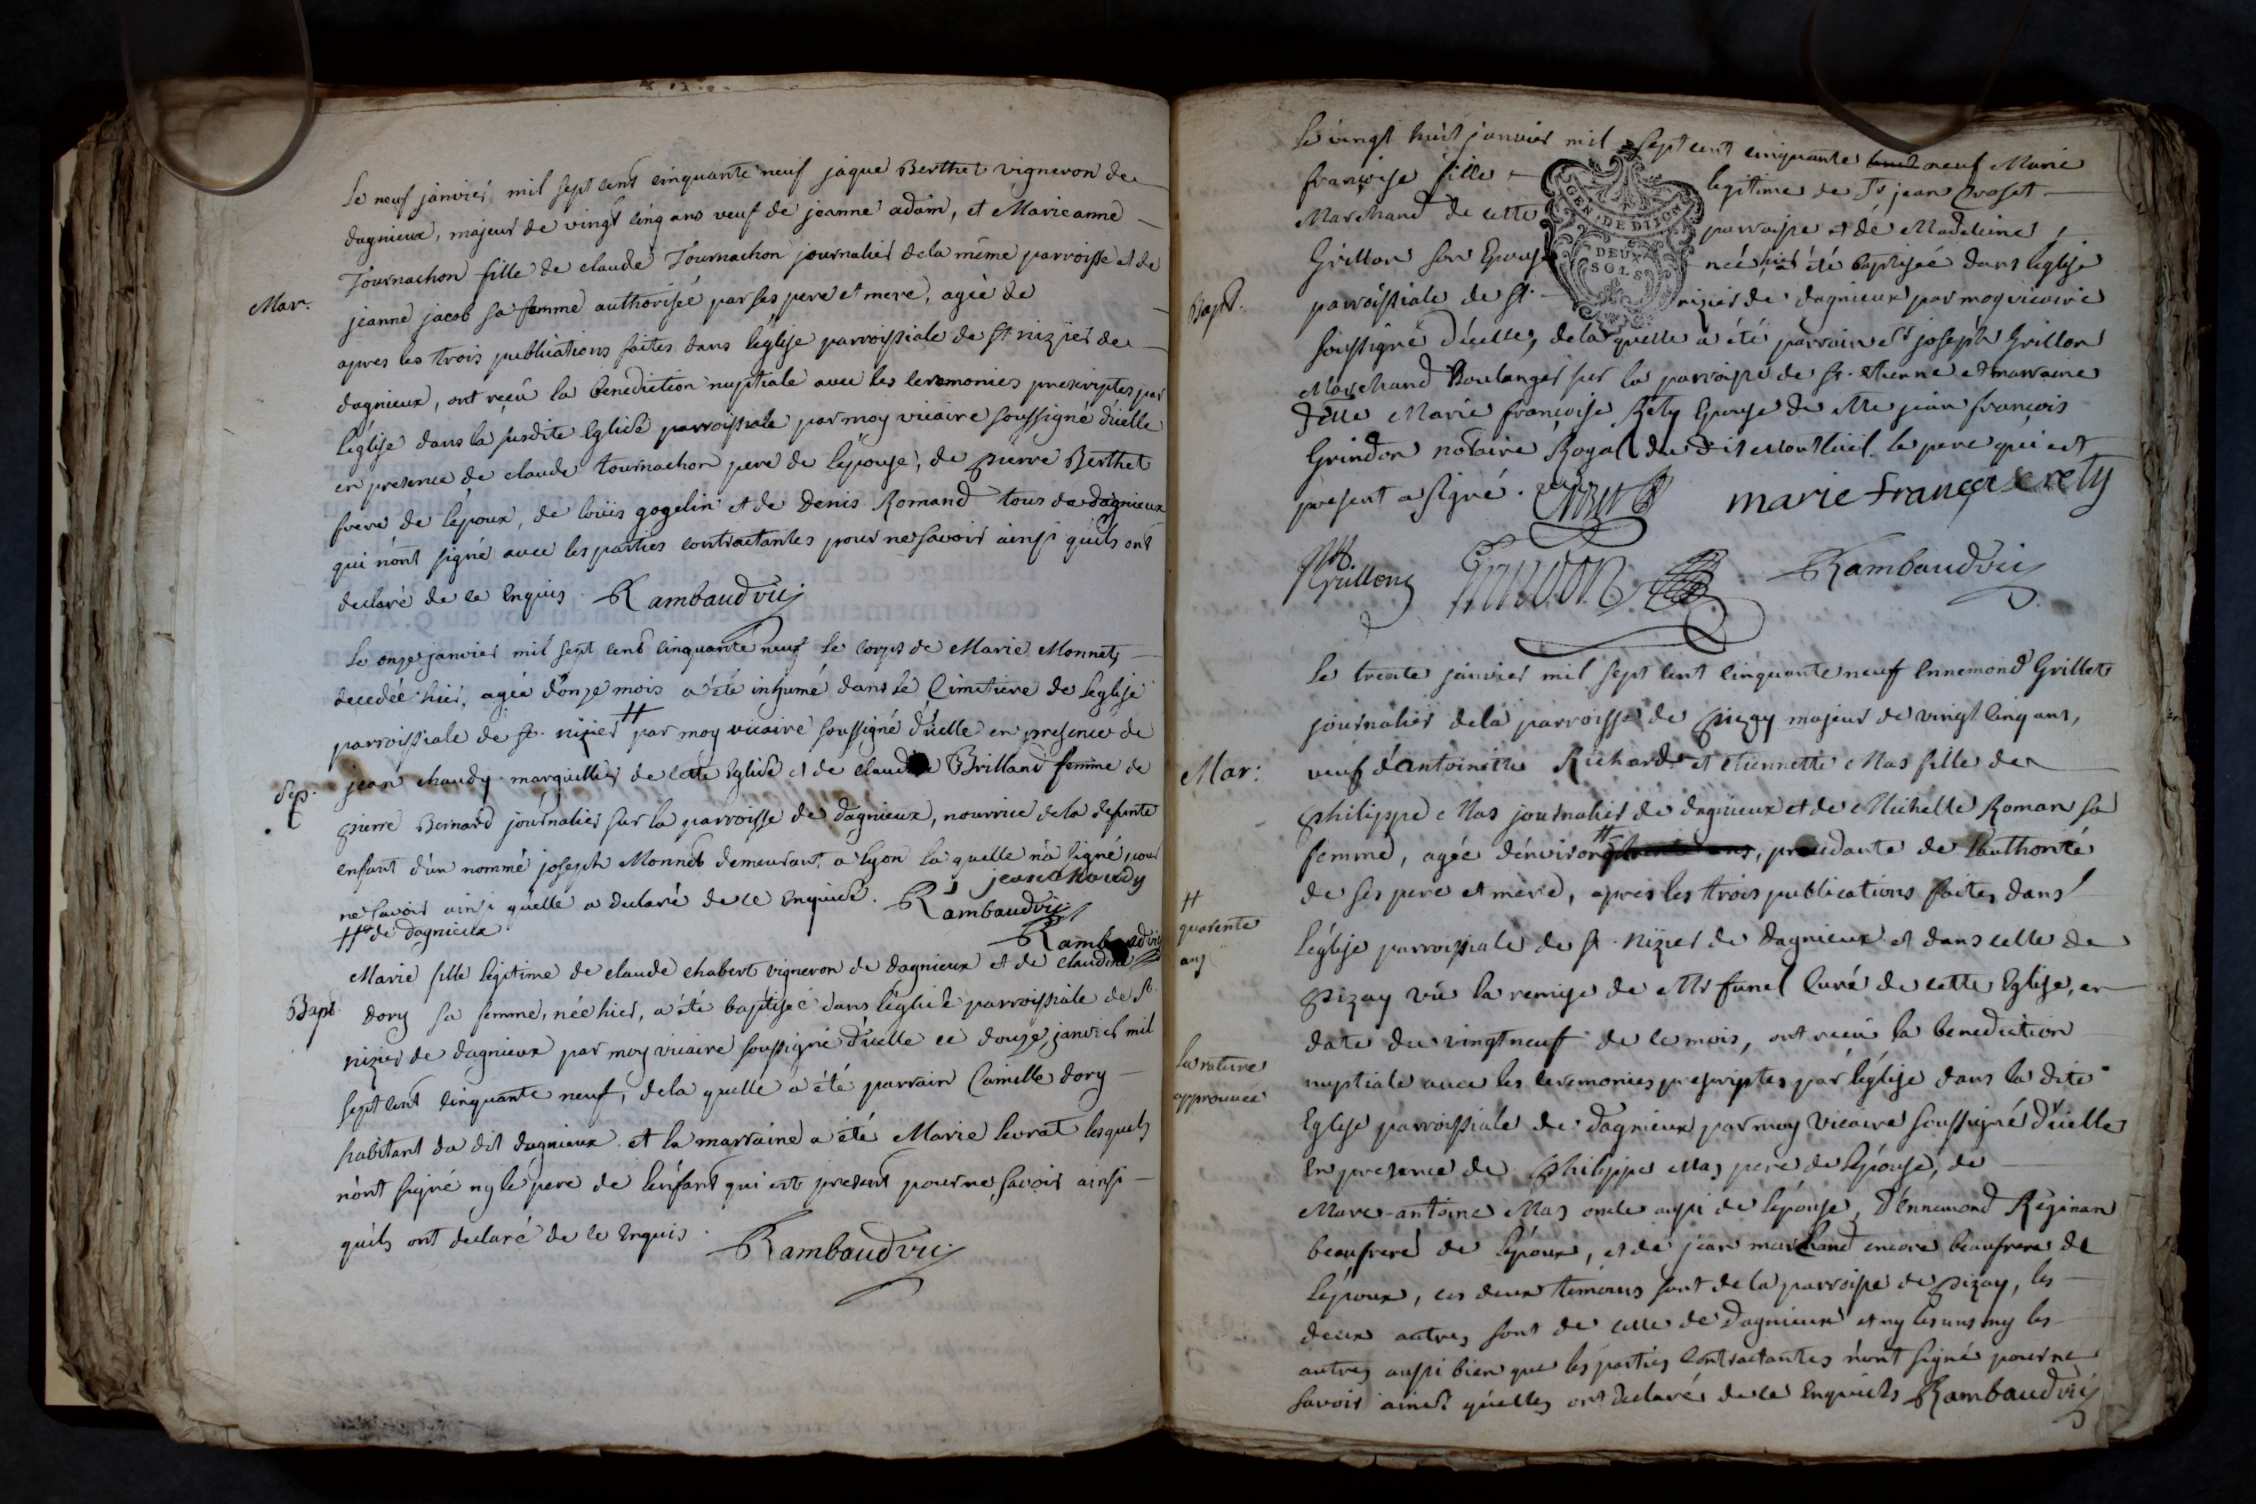 Le neuf janvier mil sept cent cinquante neuf jaque Berthet vigneron de
dagnieux, majeur de vingt cinq ans veuf de jeanne adam, et Marieanne
Tournachon fille de claude Tournachon journalier dela même parroisse et de
Mar.
jeanne jacob sa femme authorisée par ses pere et mere, agée de
apres les trois publications faites dans l'église parroissiale de st nizier de
dagnieux, ont reçû la benediction nuptiale avec les ceremonies prescriptes par
l'église dans la susdite Eglise parroissiale par moy vicaire soussigné d'icelle
en presence de claude tournachon pere de l'épouse, de pierre Berthet
frere de l'époux, de loüis gogelin et de denis Romand tous de dagnieux
qui n'ont signé avec les parties contractantes pour ne savoir ainsi quils ont
declaré de ce Enquis. Rambaud vic
Le onze janvier mil sept cent cinquante neuf le corps de Marie Monnet
decedée hier, agée d'onze mois a été inhumé dans le Cimetiere de l'eglise
parroissiale de st. nizier # par moy vicaire soussigné d'icelle en presence de
Sep.
jean chaudy marguillier de cette Eglise et de claudine Brilland femme de
pierre Bernard journalier sur la parroisse de dagnieux, nourrice dela defunte
enfant d'un nommé joseph Monnet demeurant a lyon la quelle n'a signé, pour
ne savoir ainsi qu'elle a declaré de ce Enquise. jean chaudy
Rambaud vic
# de dagnieux
Rambaud vic
Marie fille legitime de claude chabert vigneron de dagnieux et de claudine
Bapt.
dory sa femme, née hier, a été baptisée dans l'église parroissiale de st.
nizier de dagnieux par moy vicaire soussigné d'icelle ce douze janvier mil
sept cent cinquante neuf, dela quelle a été parrain Camille dory
habitant du dit dagnieux et la marraine a été Marie levrat lesquels
n'ont signé ny le pere de l'enfant qui est present pour ne savoir ainsi
quils ont declaré de ce Enquis.
Rambaud vic
Le vingt huit janvier mil sept cent cinquante huit neuf Marie
françoise fille legitime de Sr jean Crosat
Marchand de cette parroisse et de Madeleine
Grillon son Epouse née hier, a été baptisée dans l'église
GEN. DE DIJON
DEUX
SOLS
Bapt.
parroissiale de st. nizier de dagnieux par moy vicaire
soussigné d'icelle, dela quelle a été parrain sr joseph Grillon
Marchand Boulanger sur la parroisse de st. etienne et marraine
delle Marie françoise Rety Epouse de Me jean françois
Grindon notaire Royal du dit Montluel le pere qui est
present a signé.
marie françoise rety
Grillon Grindon Rambaud vic
Le trente janvier mil sept cent cinquante neuf Ennemond Grillet
journalier dela parroisse de pizay majeur de vingt cinq ans,
Mar:
veuf d'antoinette Richard et etiennette Mas fille de
philippe Mas journalier de dagnieux et de Michelle Roman sa
femme, agée d'environ # trente ans, procedante de l'authorité
de ses pere et mere, apres les trois publications faites dans
#
quarente
ans
l'église parroissiale de st. nizier de dagnieux et dans celle de
pizay vû la remise de Mr funel Curé de cette Eglise, en
date du vingt neuf de ce mois, ont reçû la benediction
La rature
approuvée
nuptiale avec les ceremonies prescriptes par l'église dans la dite
Eglise parroissiale de dagnieux par moy vicaire soussigné d'icelle
En presence de philippe Mas pere de l'épouse, de
Marc-antoine Mas oncle aussi de l'épouse, d'Ennemond Réginan
beaufrere de l'époux, et de jean marchand encore beaufrere de
l'époux, ces deux temoins sont dela parroisse de pizay, les
deux autres sont de celle de dagnieux et ny les uns ny les
autres aussi bien que les parties contractantes n'ont signé pour ne
savoir ainsi qu'elles ont declaré de ce Enquises Rambaud vic